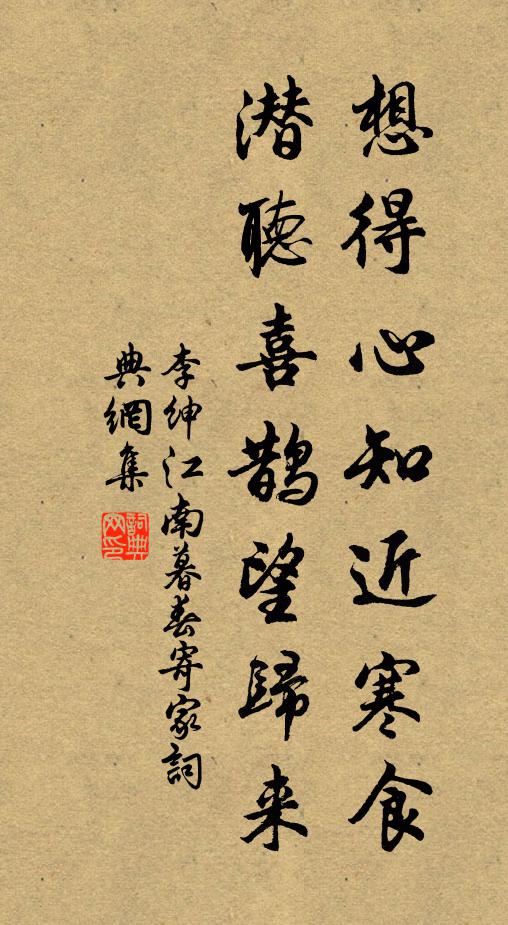 想得心知近寒食
潜聽喜鵲望歸来
李紳江南暮春寄家詞
典網集
詞典網印